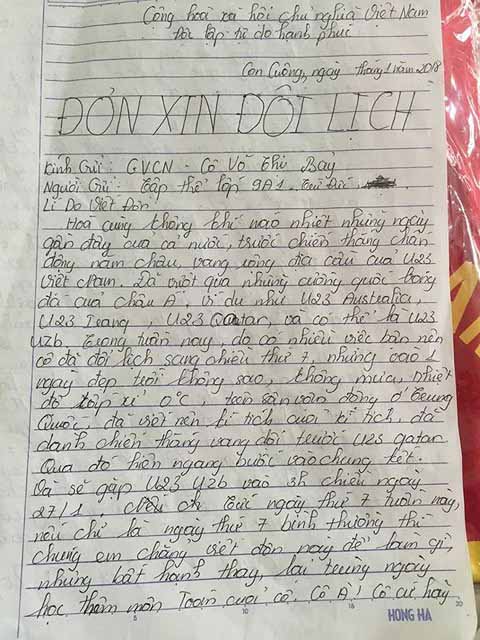 Cộng hoà xã hội chủ nghĩa Việt Nam
Độc lập tự do hạnh phúc
Con Cuông, ngày tháng 1 năm 2018
ĐƠN XIN ĐỔI LỊCH
Kính Gửi: GVCN - Cô Võ Thị Bảy
Người Gửi: Tập thể lớp 9A1 -
Lí Do Viết Đơn:
Hoà cùng không khí náo nhiệt những ngày
gần đây của cả nước, trước chiến thắng chấn
động năm châu, vang vọng địa cầu của U23
Việt Nam. Đã vượt qua những cường quốc bóng
đá của châu Á, ví dụ như U23 Australia,
U23 Irang, U23 Qatar, và có thể là U23
Uzb. Trong tuần này, do có nhiều việc bận nên
cô đã đổi lịch sang chiều thứ 7, nhưng vào 1
ngày đẹp trời không sao, không mưa, nhiệt
độ xấp xỉ 0°C, trên sân vận động ở Trung
Quốc, đã viết nên kì tích cuối kì tích, đã
dành chiến thắng vang dội trước U23 qatar
Qua đó hiên ngang bước vào chung kết.
Và sẽ gặp U23 Uzb vào 3h chiều ngày
27/1. Tức ngày thứ 7 tuần này,
nếu chỉ là ngày thứ 7 bình thường thì
chúng em chẳng viết đơn này để làm gì,
nhưng bất hạnh thay, lại trùng ngày
học thêm môn Toán của cô. Cô À! Cô cứ hãy
HONG HA